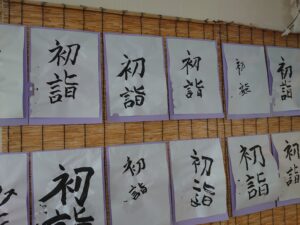 初詣
初詣
初詣
初詣
初詣
初詣
初詣
初詣
初詣
初詣